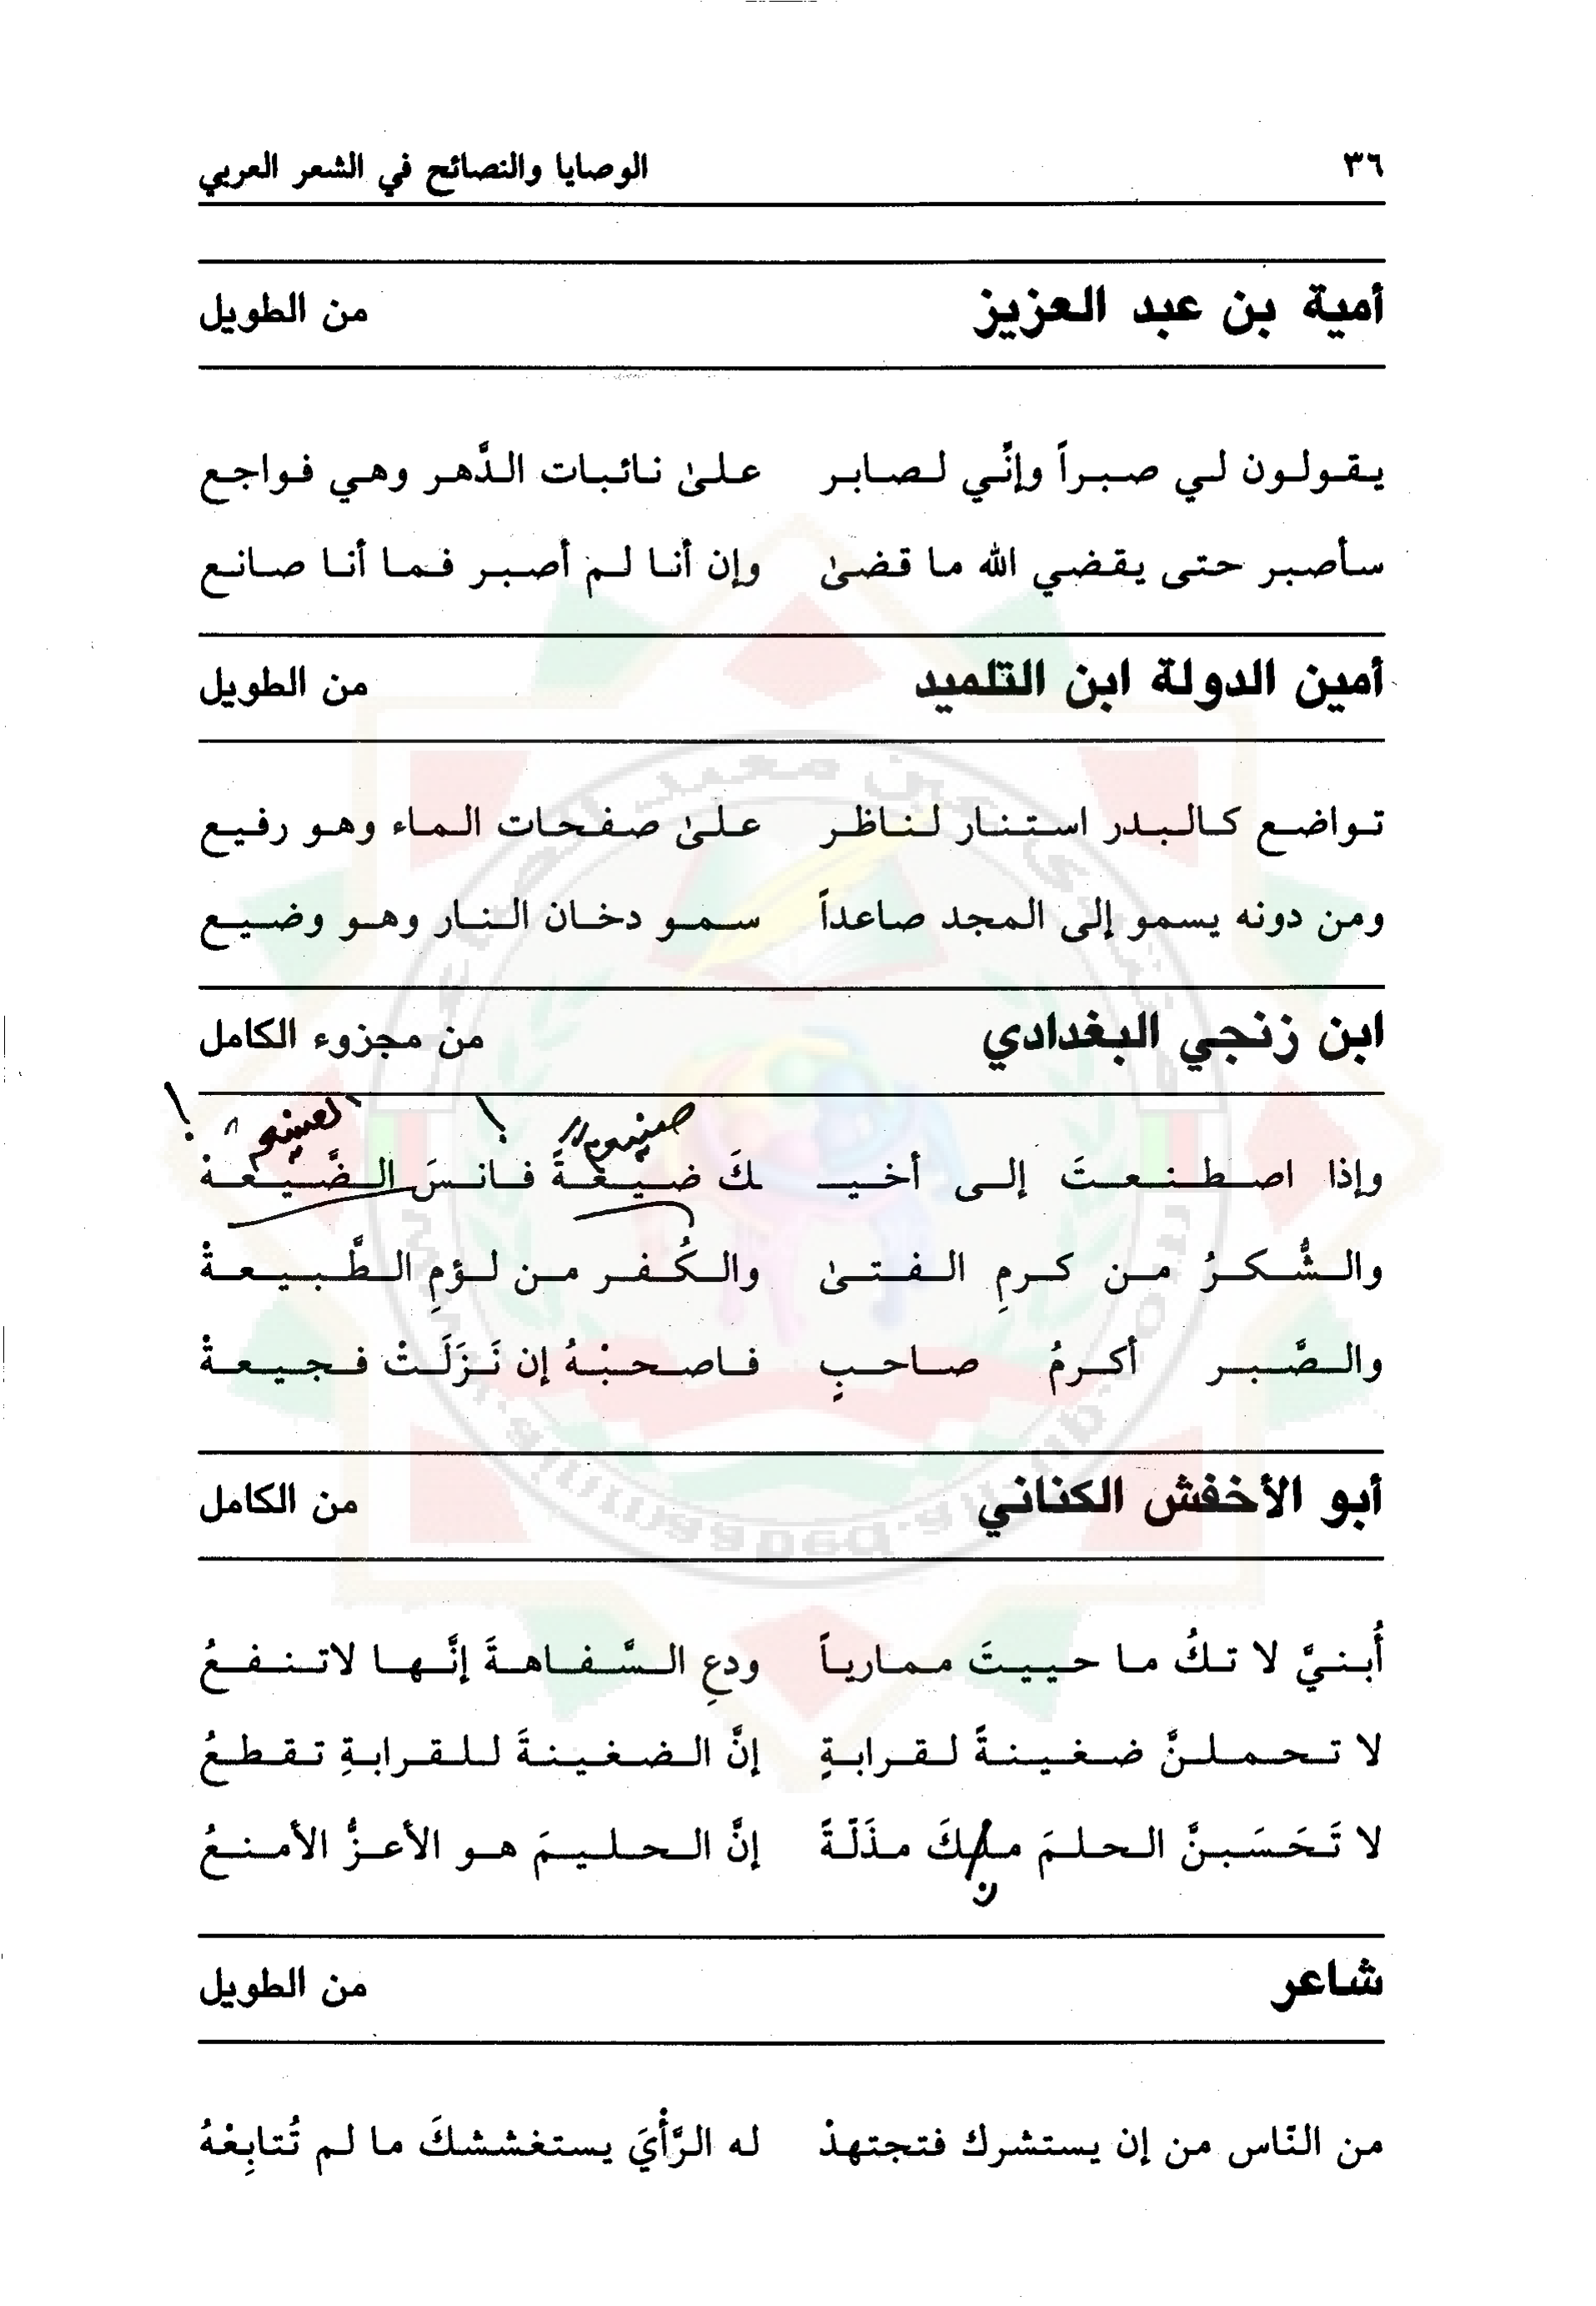 ٣٦ الوصايا والنصائح في الشعر العربي
أمية بن عبد العزيز من الطويل
يقولون لي صبراً وإنّي لصابر علىٰ نائبات الدَّهر وهي فواجع
سأصبر حتى يقضي الله ما قضىٰ وإن أنا لم أصبر فما أنا صانع
أمين الدولة ابن التلميد من الطويل
تواضع كالبدر استنار لناظر علىٰ صفحات الماء وهو رفيع
ومن دونه يسمو إلى المجد صاعداً سمو دخان النار وهو وضيع
ابن زنجي البغدادي من مجزوء الكامل
وإذا اصطنعتَ إلى أخيـ ـكَ ضيعَةً فانسَ الضَّيعة
والشُّكرُ من كرمِ الفتىٰ والكُفر من لؤمِ الطَّبيعةْ
والصَّبر أكرمُ صاحبٍ فاصحبْهُ إن نَزَلَتْ فجيعةْ
أبو الأخفش الكناني من الكامل
أُبنيَّ لا تكُ ما حييتَ ممارياً ودعِ السَّفاهةَ إنَّها لاتنفعُ
لا تحملنَّ ضغينةً لقرابةٍ إنَّ الضغينةَ للقرابةِ تقطعُ
لا تَحَسَبنَّ الحلمَ ملكَ مذَلّةً إنَّ الحليمَ هو الأعزُّ الأمنعُ
ن
شاعر من الطويل
من النّاس من إن يستشرك فتجتهدْ له الرَّأْيَ يستغششكَ ما لم تُتابِعْهُ